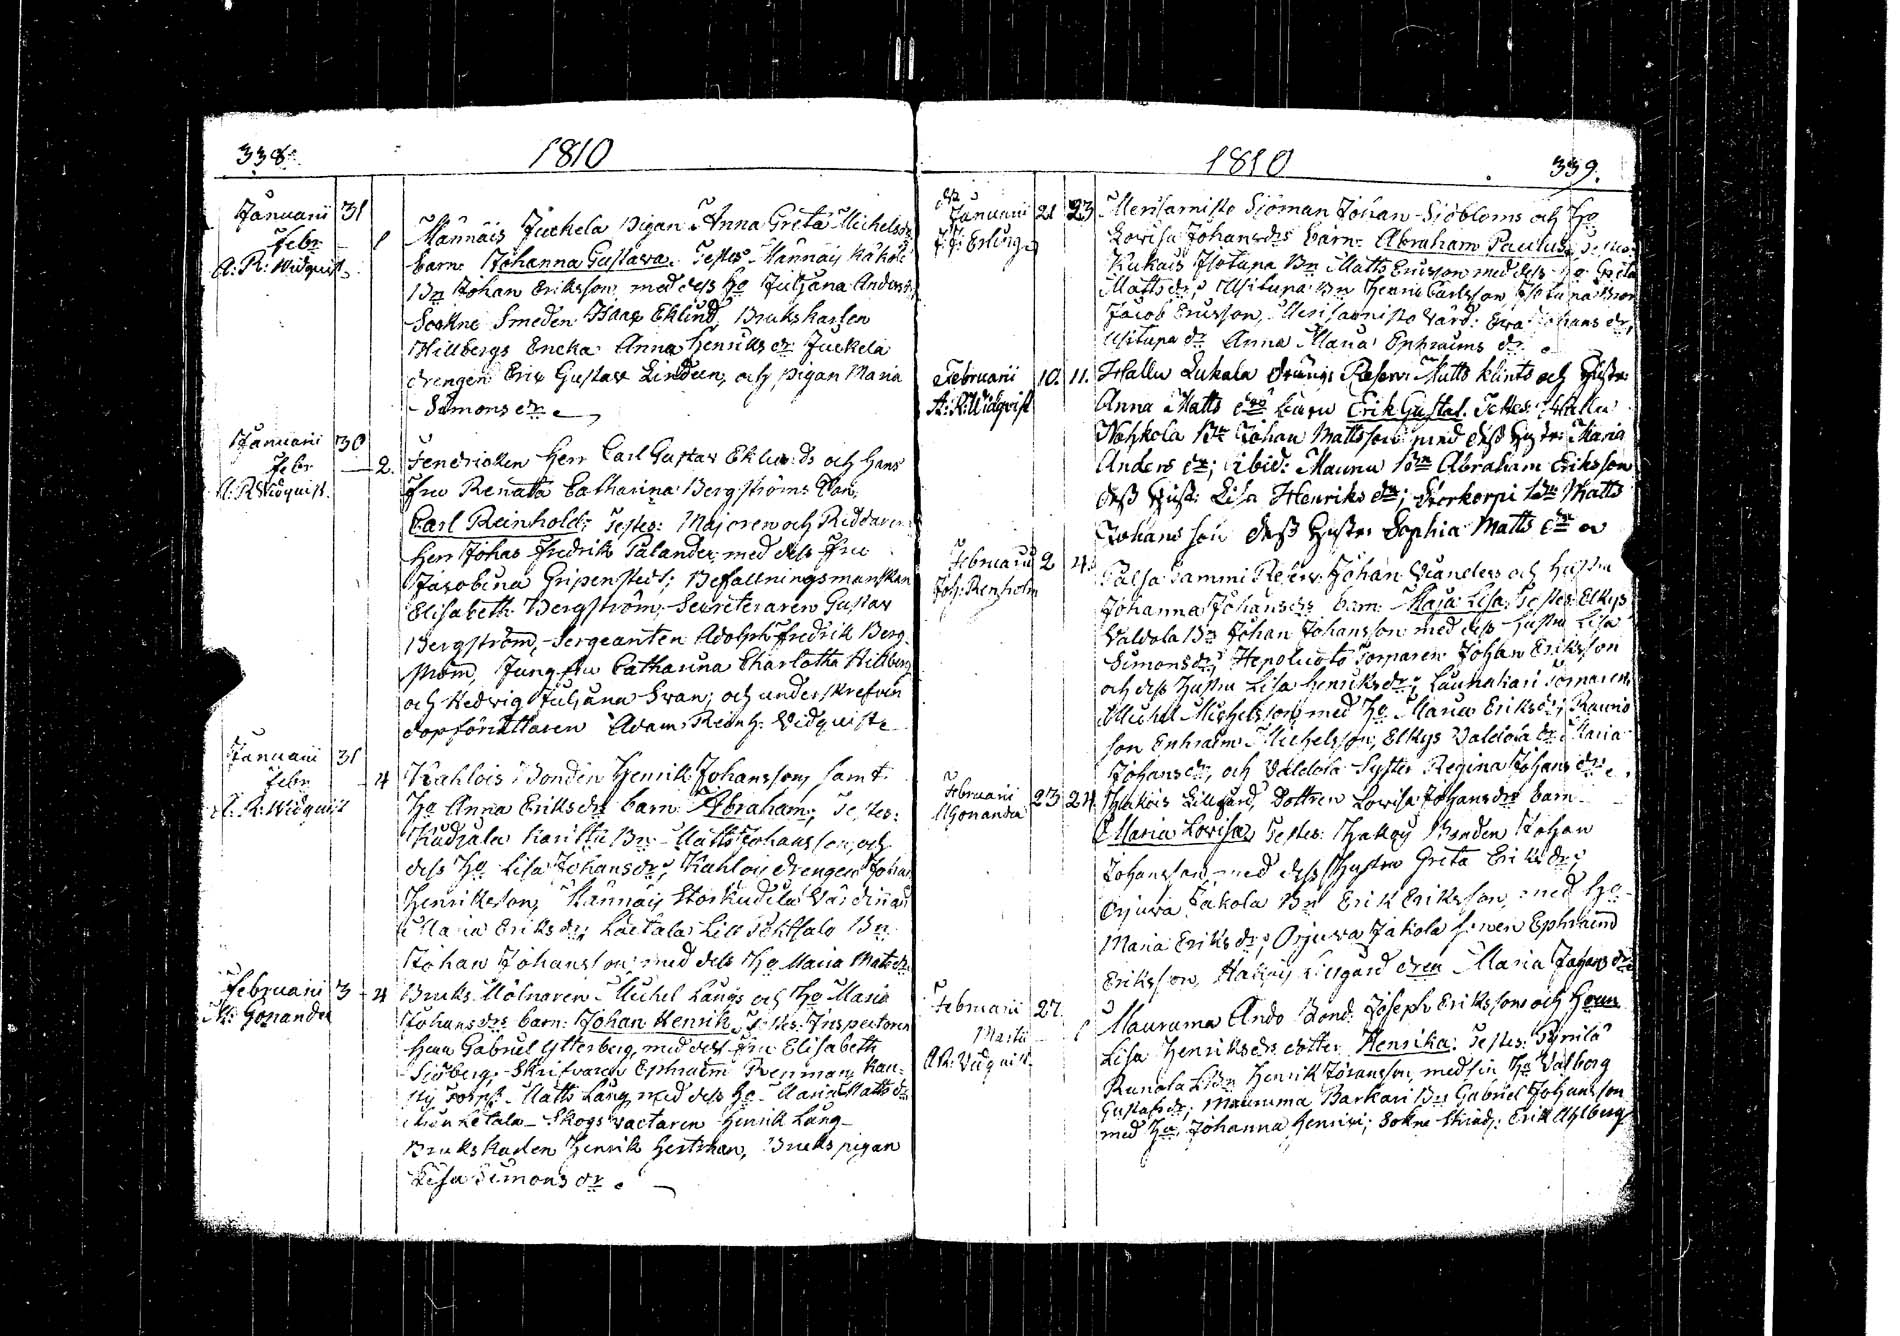 338.
1810
Januarii 31
Febr. 1
A: R: Widquist
Männäis Juckela Pigan Anna Greta Michelsdr
barn: Johanna Gustava. Testes Männäis Käköl
Bn Johan Eriksson, med dess Ho Juliana Andersdr,
Sockne Smeden Isaac Eklind, Brukskarlen
Hillbergs Encka Anna Henriksdr: Juckela
drengen Eric Gustav Lindeen, och pigan Maria
Simonsdr.
Januarii 30
Febr 2.
A: R: Widquist.
Fendricken Herr Carl Gustav Eklunds och Hans
Fru Renata Catharina Bergströms
Carl Reinhold; Testes: Majoren och Riddaren
Herr Johas Fredrik Palander med dess Fru
Jacobina Gripenstedt; Befallningsmanskan
Elisabeth Bergström, Secreteraren Gustav
Bergström, Sergeanten Adolph Fredrik Berg-
ström, Jungfru Catharina Charlotha Hillberg
och Hedvig Juliana Svan; och underskrefven
dopförrättaren Adam Reinh: Widquist
Januarii 31
Febr 4
A: R: Widquist
Kahlois Bonden Henrik Johansson, samt
Ho Anna Eriksdrs barn Abraham; Testes:
Kudjala Karittu Bn Matts Johansson, och
dess Ho Lisa Johansdr; Kahlois drengen Johan
Henriksson, Männäis Storkudila Värdinnan
Maria Eriksdr; Laetala Bn
Johan Johansson med dess Ho Maria Matsdr.
Februarii 3 4
M: Gonander
Bruks Mölnaren Michel Längs och Ho Maria
Johansdrs barn: Johan Henrik. Testes: Inspectoren
Herr Gabriel Ytterberg, med dess Fru Elisabeth
Sjöberg, Skrifvaren Ephraim Renman, Kan-
Torp: Matts Läng med dess Ho Maria Mattsdr
Skogsvactaren Henrik Läng
Brukskarlen Henrik Hertman, Brukspigan
Lisa Simonsdr.
1810
339.
Januarii 21 23
Merisamisto Sjöman Johan Sjöbloms och Ho
Lovisa Johansdrs barn: Abraham Paulus, Testes:
Kukais Isotupa Bn Matts Ericsson med dess Ho Greta
Mattsdr; Usitupa Bn Henric Carlsson, Isotupa Bror
Jacob Ericsson, Merisamisto Värd: Eva Johansdr,
Usitupa dr Anna Maria Ephraimsdr.
Februarii 10. 11.
A: R: Widqvist
Hallu Lukala drängs Reserv: Matts Klints och Hustr:
Anna Matts drs barn Erik Gustaf. Testes: Hallu
Nohkola Bn Johan Mattsson med dess Hustr: Maria
Anders dr; ibid: Maunu Bn Abraham Eriksson
dess Hust: Lisa Henriks dr; Storkorpi Bn Matts
Johansson dess Hustr: Sophia Matts dr
Februarii 2 4.
Joh: Renholm
Palsa Sammi Reserv: Johan Vianders och Hustru
Johanna Johansdrs barn: Maja Lisa; Testes: Elkys
Valdola Bn Johan Johansson med dess hustru Lisa
Simonsdr; Hepoluoto Torparen Johan Eriksson
och dess Hustru Lisa Henriksdr; Launakari Torparen
Michel Michelsson med Ho Maria Eriksdr; Raumo
son Ephraim Michelsson, Elkys Valdola dr Maria
Johansdr, och Valdola Syster Regina Johansdr.
Februarii 23 24
M Gonander
Hakois Lillgård Dottren Lovisa Johansdrs barn
Maria Lovisa, Testes: Hakois Bonden Johan
Johansson med dess Hustru Greta Eriksdr;
Orjuva Jakola Bn Erik Eriksson, med Ho
Maria Eriksdr; Orjuva Jakola sonen Ephraim
Eriksson, Hakois Lillgård dren Maria Johansdr.
Februarii 27
Martii 1
A R: Vidquist.
Mauruma Ando Bond: Joseph Erikssons och Hustr
Lisa Henriksdrs dotter Henrika: Testes:
Runola Bn Henrik Johansson, med sin Ho Valborg
Gustafsdr; Mauruma Barkari Bn Gabriel Johansson
med Ho Johanna Henrici; Sokne Skräd: Erik Ahlberg